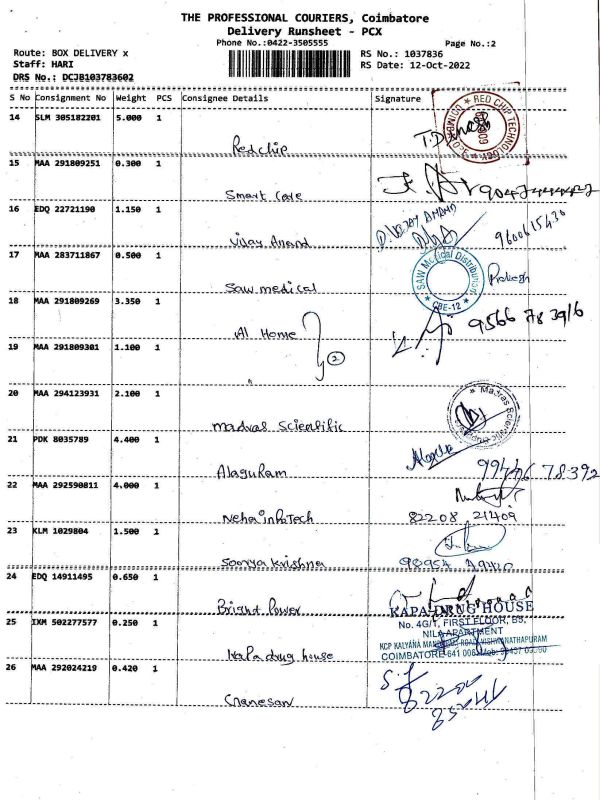 THE PROFESSIONAL COURIERS, Coimbatore
Delivery Runsheet - PCX
Phone No.:0422-3505555 Page No.:2
Route: BOX DELIVERY x RS No.: 1037836
Staff: HARI RS Date: 12-Oct-2022
DRS No.: DCJB103783602
S No Consignment No Weight PCS Consignee Details Signature
14 SLM 305182201 5.000 1
RED CHIP TECHNOLOGY
Redchip
15 MAA 291809251 0.300 1
Smart Care
16 EDQ 22721190 1.150 1
D. VIJAY ANAND
Vijay Anand 9600615430
17 MAA 283711867 0.500 1
SAW Medical Distributors
CBE-12
Saw medical
18 MAA 291809269 3.350 1
Al Home 9566 78 3916
19 MAA 291809301 1.100 1
2
20 MAA 294123931 2.100 1
Madras Scientific
madras Scientific
21 PDK 8035789 4.400 1
AlaguRam 99446 78392
22 MAA 292590811 4.000 1
Neha infoTech 82208 21409
23 KLM 1029804 1.500 1
Soorya Krishna 98954
24 EDQ 14911495 0.650 1
Bright Power
25 IXM 502277577 0.250 1
KAPA DRUG HOUSE
No. 4G/1, FIRST FLOOR, B3,
NILA APARTMENT
KCP KALYANA ROAD, VISHWANATHAPURAM
COIMBATORE-641 008
Kapa drug house
26 MAA 292024219 0.420 1
Ganesan